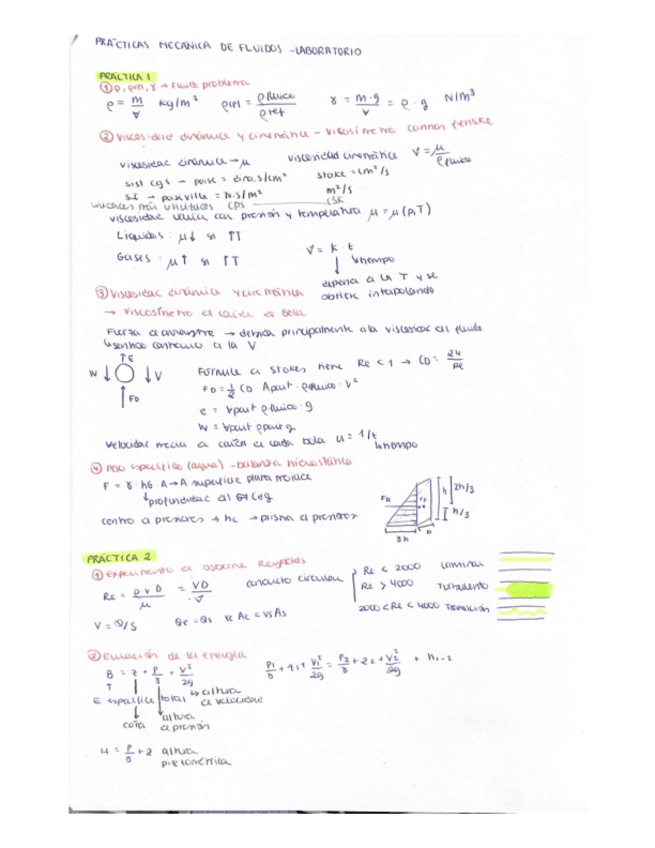 PRÁCTICAS MECÁNICA DE FLUIDOS - LABORATORIO
PRÁCTICA 1
① ρ, ρrel, γ → Fluido problema
ρ = m/V kg/m³ ρrel = ρfluido/ρref γ = m·g/V = ρ·g N/m³
② Viscosidad dinámica y cinemática - Viscosímetro cannon fenske
viscosidad dinámica → μ viscosidad cinemática V = μ/ρfluido
sist cgs - poise = dina.s/cm² stoke = cm²/s
S.I → poiseville = N.s/m² m²/s
unidades más utilizadas CPS CSK
viscosidad varía con presión y temperatura μ = μ(p,T)
Líquidos: μ↓ si ↑T
V = k · t
Gases: μ↑ si ↑T
↳ tiempo
depende a la T y se
obtiene interpolando
③ Viscosidad dinámica y cinemática
→ Viscosímetro de caída de bola
Fuerza de arrastre → debida principalmente a la viscosidad del fluido
↳ sentido contrario a la V
↑E
W ↓ ↓ V
↑ FD
Fórmula de Stokes tiene Re < 1 → CD = 24/Re
FD = 1/2 CD · Apart · ρfluido · V²
e = Vpart ρfluido · g
W = Vpart ρpart g
Velocidad media de caída de cada bola u = 1/t
↳ tiempo
④ Peso específico (agua) - balanza hidrostática
F = γ · hG · A → A superficie plana mojada
↓ profundidad del cdg
centro de presiones → hc → prisma de presiones
FR
h
2h/3
h/3
γh
PRÁCTICA 2
① Experimento de Osborne Reynolds
Re = ρ V D/μ = VD/V conducto circular
Re < 2000 Laminar
Re > 4000 Turbulento
2000 < Re < 4000 Transición
V = Q/S Qe = Qs Ve Ae = Vs As
② Ecuación de la energía
B = z + P/γ + V²/2g
P1/γ + z1 + V1²/2g = P2/γ + z2 + V2²/2g + h1-2
E específica total
↳ altura de velocidad
cota
altura de presión
H = P/γ + z altura
piezométrica